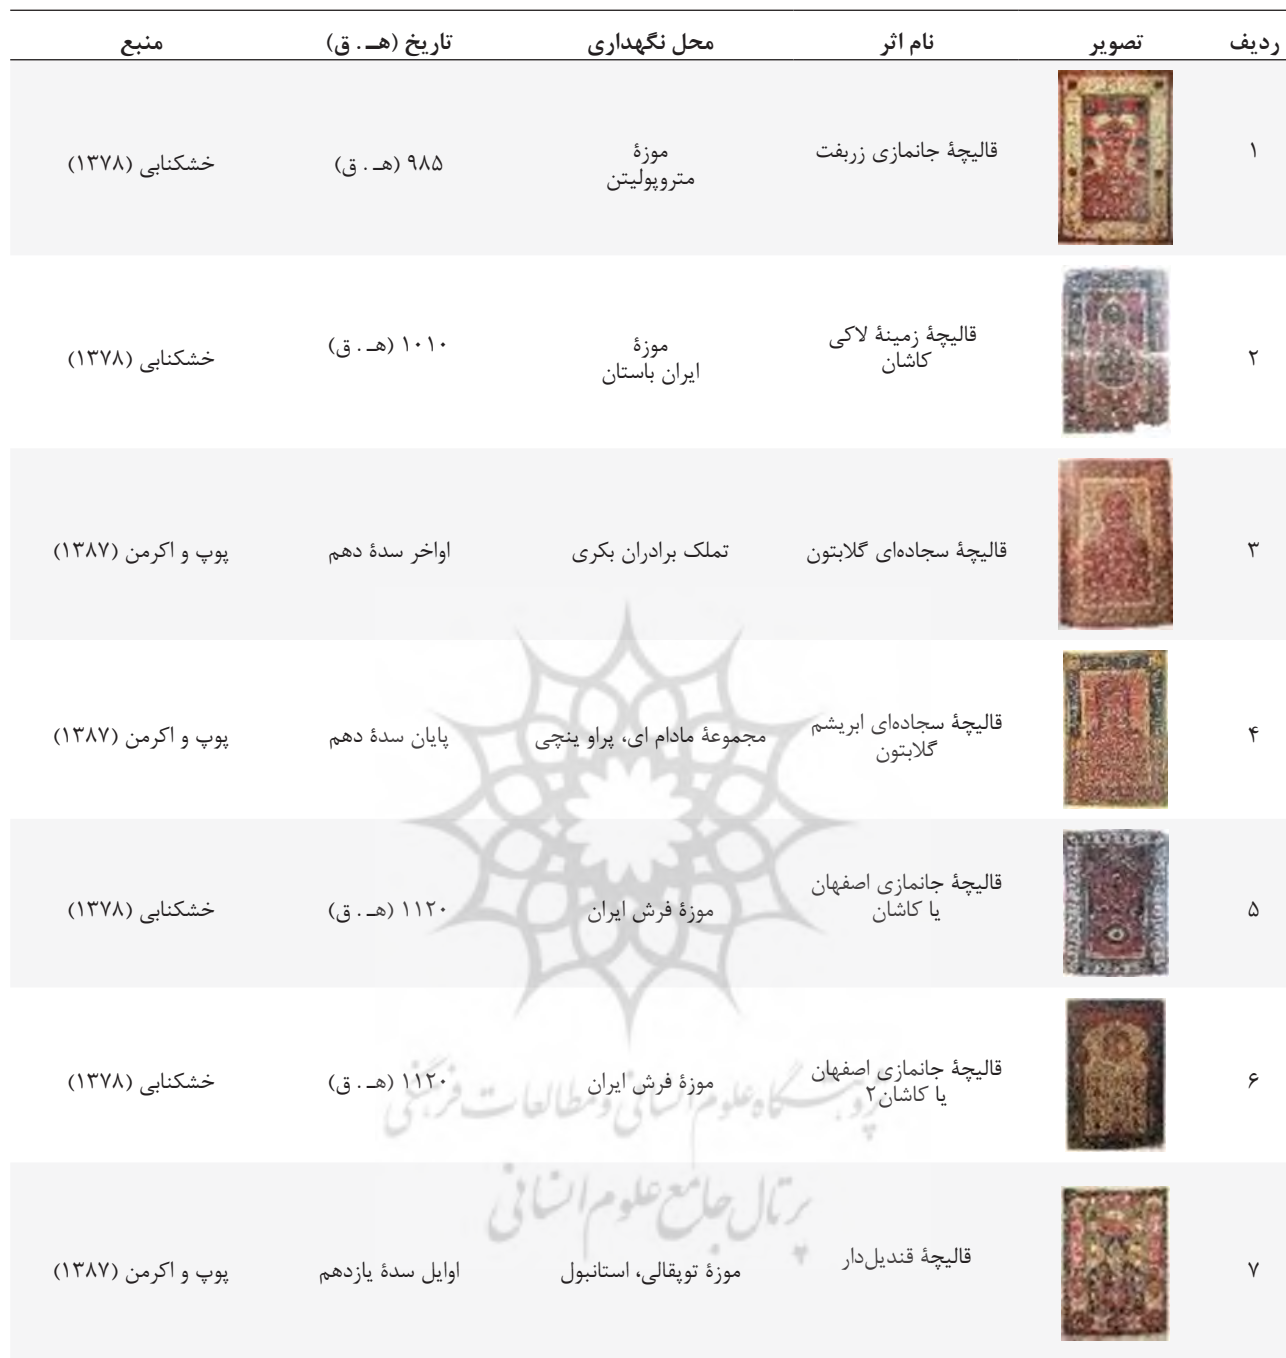 ردیف تصویر نام اثر محل نگهداری تاریخ (هـ . ق) منبع
۱ قالیچهٔ جانمازی زربفت موزهٔ
متروپولیتن ۹۸۵ (هـ . ق) خشکنابی (۱۳۷۸)
۲ قالیچهٔ زمینهٔ لاکی
کاشان موزهٔ
ایران باستان ۱۰۱۰ (هـ . ق) خشکنابی (۱۳۷۸)
۳ قالیچهٔ سجاده‌ای گلابتون تملک برادران بکری اواخر سدهٔ دهم پوپ و اکرمن (۱۳۸۷)
۴ قالیچهٔ سجاده‌ای ابریشم
گلابتون مجموعهٔ مادام ای، پراو ینچی پایان سدهٔ دهم پوپ و اکرمن (۱۳۸۷)
۵ قالیچهٔ جانمازی اصفهان
یا کاشان موزهٔ فرش ایران ۱۱۲۰ (هـ . ق) خشکنابی (۱۳۷۸)
۶ قالیچهٔ جانمازی اصفهان
یا کاشان۲ موزهٔ فرش ایران ۱۱۲۰ (هـ . ق) خشکنابی (۱۳۷۸)
پژوهشگاه علوم انسانی و مطالعات فرهنگی
پرتال جامع علوم انسانی
۷ قالیچهٔ قندیل‌دار موزهٔ توپقالی، استانبول اوایل سدهٔ یازدهم پوپ و اکرمن (۱۳۸۷)